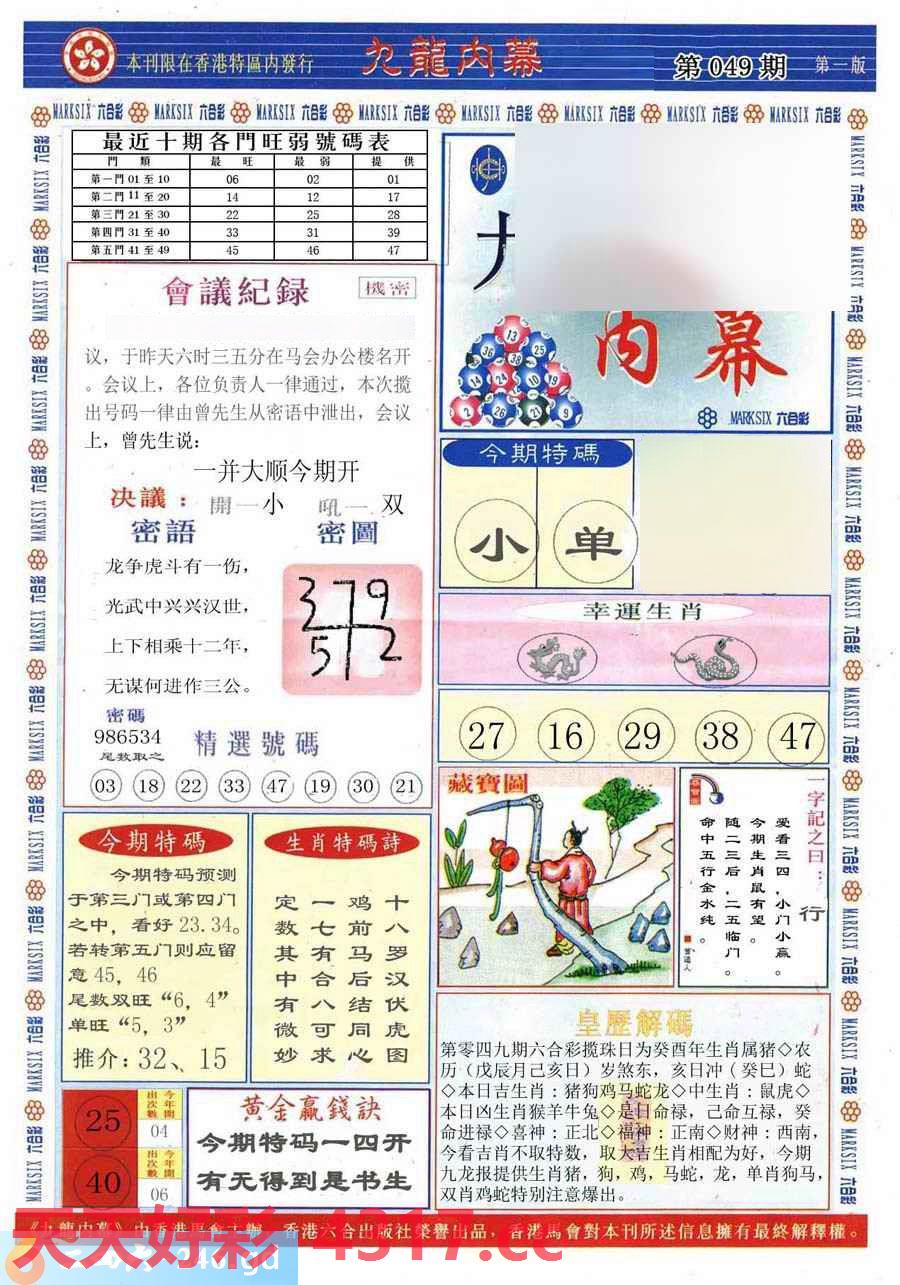 本刊限在香港特區内發行
九龍内幕
第 049 期
第一版
MARKSIX 六合彩 MARKSIX 六合彩 MARKSIX 六合彩 MARKSIX 六合彩 MARKSIX 六合彩 MARKSIX 六合彩 MARKSIX 六合彩 MARKSIX 六合彩
最近十期各門旺弱號碼表
門 類 最 旺 最 弱 提 供
第一門 01 至 10 06 02 01
第二門 11 至 20 14 12 17
第三門 21 至 30 22 25 28
第四門 31 至 40 33 31 39
第五門 41 至 49 45 46 47
會議紀録
機密
议，于昨天六时三五分在马会办公楼名开
。会议上，各位负责人一律通过，本次揽
出号码一律由曾先生从密语中泄出，会议
上，曾先生说：
一并大顺今期开
决議： 開一小 吼一 双
密語
密圖
龙争虎斗有一伤，
光武中兴兴汉世，
上下相乘十二年，
无谋何进作三公。
379
512
密碼
986534
尾数取之
精選號碼
03 18 22 33 47 19 30 21
内幕
13
36 38 25
14 24 10 19
2 26 21 9
MARKSIX 六合彩
今期特碼
小 单
幸運生肖
27 16 29 38 47
藏寶圖
一字記之曰：
行
爱看三四，小门小赢。
今期生肖鼠有望。
随二三后，二五临门。
命中五行金水纯。
今期特碼
今期特码预测
于第三门或第四门
之中，看好 23.34。
若转第五门则应留
意 45，46
尾数双旺“6，4”
单旺“5，3”
推介：32、15
生肖特碼詩
十八罗汉伏虎图
鸡前马后结同心
一七有合八可求
定数其中有微妙
25
今年開出次數
04
40
今年開出次數
06
黄金赢錢訣
今期特码一四开
有无得到是书生
皇歷解碼
第零四九期六合彩揽珠日为癸酉年生肖属猪◇农
历（戊辰月己亥日）岁煞东，亥日冲（癸巳）蛇
◇本日吉生肖：猪狗鸡马蛇龙◇中生肖：鼠虎◇
本日凶生肖猴羊牛兔◇是日命禄，己命互禄，癸
命进禄◇喜神：正北◇福神：正南◇财神：西南，
今看吉肖不取特数，取大吉生肖相配为好，今期
九龙报提供生肖猪，狗，鸡，马蛇，龙，单肖狗马，
双肖鸡蛇特别注意爆出。
《九龍内幕》由香港馬會主辦，香港六合出版社榮譽出品，香港馬會對本刊所述信息擁有最終解釋權。
天天好彩 4317.cc
246.gd